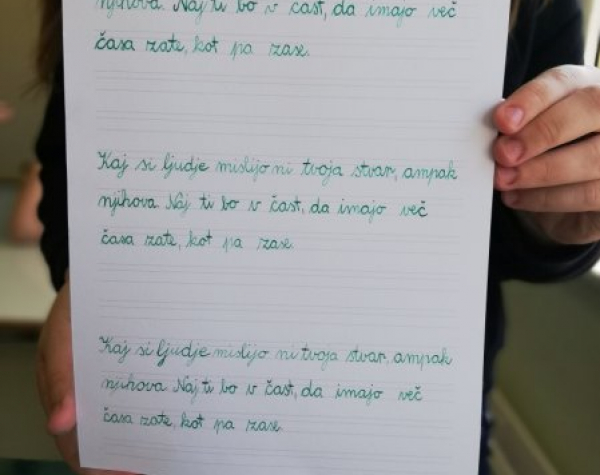 njihova. Naj ti bo v čast, da imajo več
časa zate, kot pa zase.
Kaj si ljudje mislijo ni tvoja stvar, ampak
njihova. Naj ti bo v čast, da imajo več
časa zate, kot pa zase.
Kaj si ljudje mislijo ni tvoja stvar, ampak
njihova. Naj ti bo v čast, da imajo več
časa zate, kot pa zase.